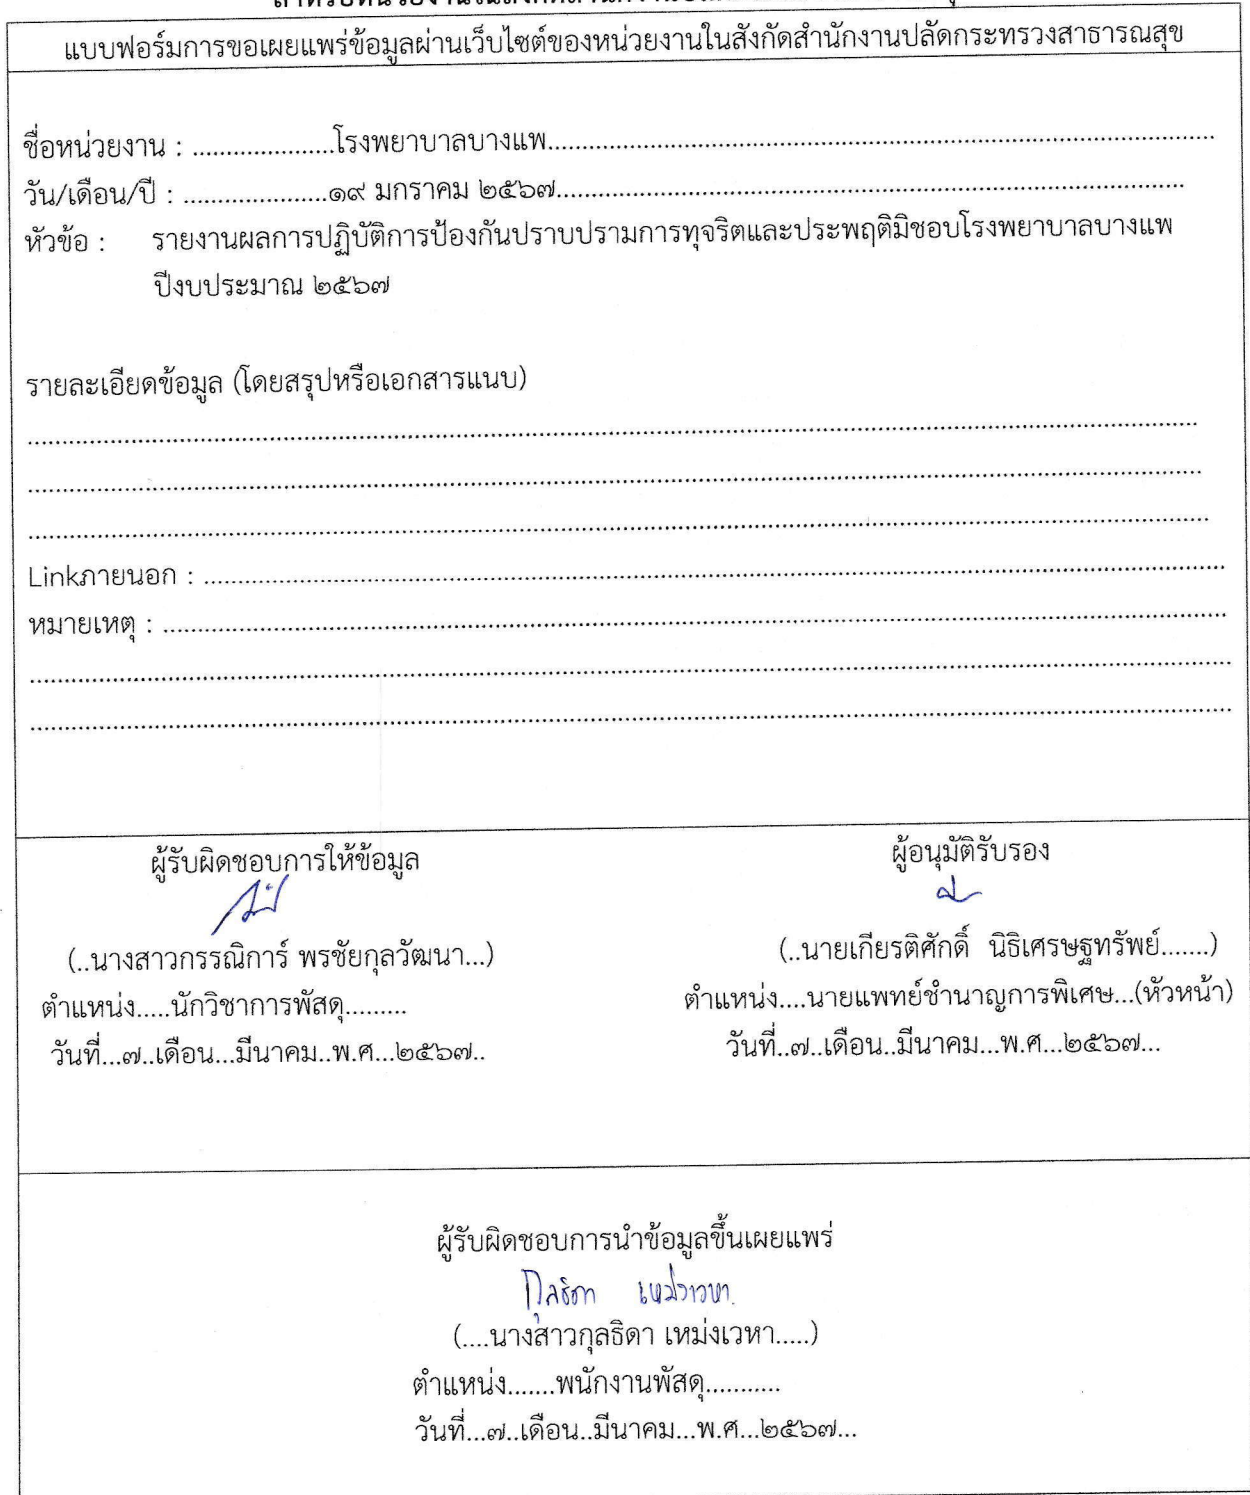 แบบฟอร์มการขอเผยแพร่ข้อมูลผ่านเว็บไซต์ของหน่วยงานในสังกัดสำนักงานปลัดกระทรวงสาธารณสุข
ชื่อหน่วยงาน : .....................โรงพยาบาลบางแพ....................
วัน/เดือน/ปี : .....................๑๙ มกราคม ๒๕๖๗....................
หัวข้อ : รายงานผลการปฏิบัติการป้องกันปราบปรามการทุจริตและประพฤติมิชอบโรงพยาบาลบางแพ
ปีงบประมาณ ๒๕๖๗
รายละเอียดข้อมูล (โดยสรุปหรือเอกสารแนบ)
Linkภายนอก : ....................
หมายเหตุ : ....................
ผู้รับผิดชอบการให้ข้อมูล
(..นางสาวกรรณิการ์ พรชัยกุลวัฒนา...)
ตำแหน่ง.....นักวิชาการพัสดุ.........
วันที่...๗..เดือน...มีนาคม..พ.ศ...๒๕๖๗..
ผู้อนุมัติรับรอง
(..นายเกียรติศักดิ์ นิธิเศรษฐทรัพย์.......)
ตำแหน่ง....นายแพทย์ชำนาญการพิเศษ...(หัวหน้า)
วันที่..๗..เดือน..มีนาคม...พ.ศ...๒๕๖๗...
ผู้รับผิดชอบการนำข้อมูลขึ้นเผยแพร่
กุลธิดา เหม่งเวหา
(....นางสาวกุลธิดา เหม่งเวหา.....)
ตำแหน่ง.......พนักงานพัสดุ...........
วันที่...๗..เดือน..มีนาคม...พ.ศ...๒๕๖๗...